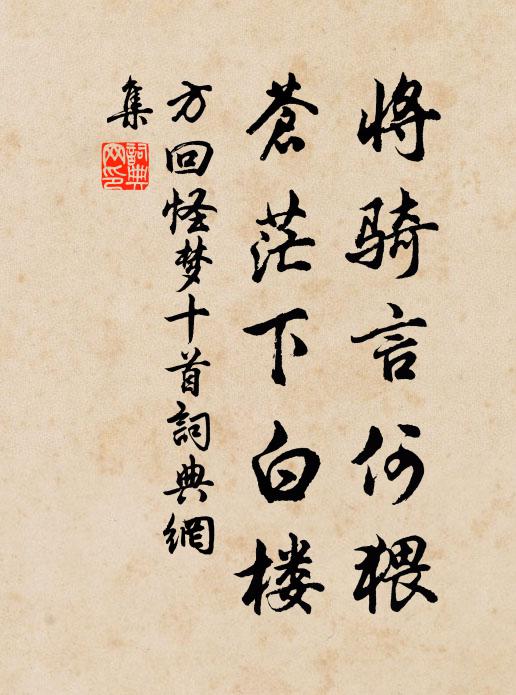 将骑言何猥
蒼茫下白楼
方回怪梦十首詞典網
集
詞典網印